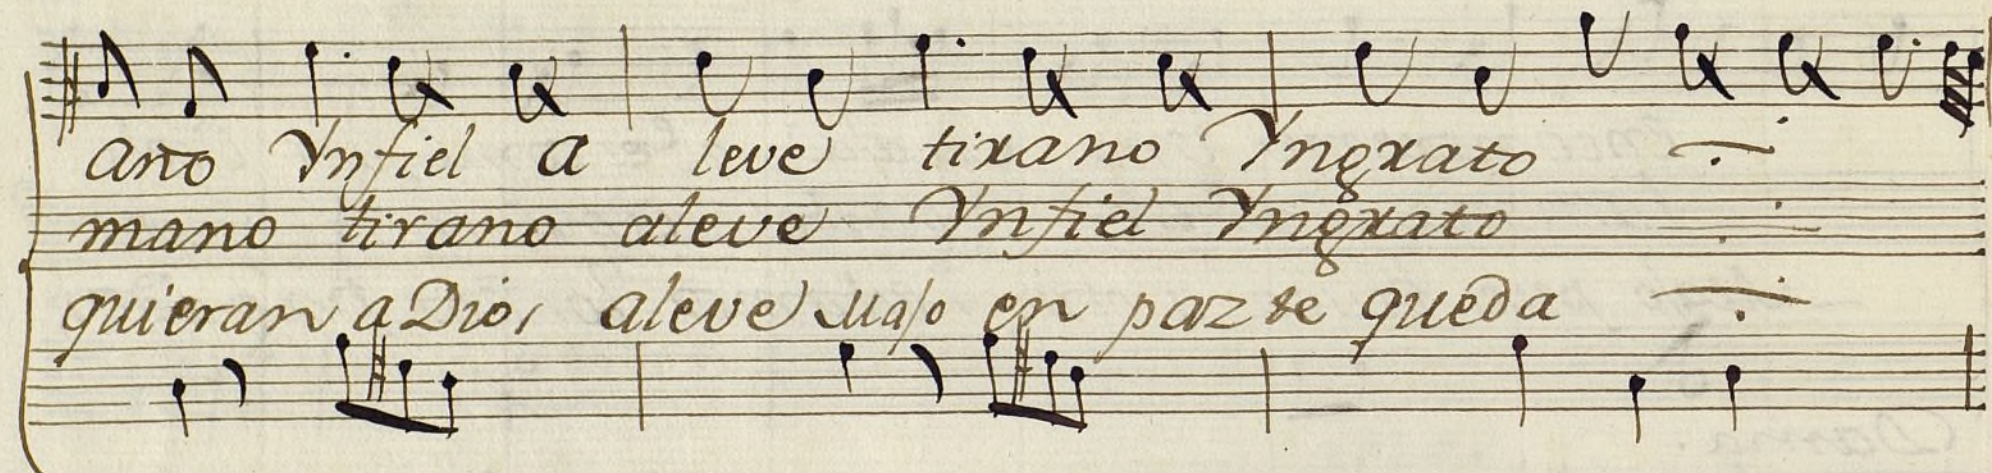 ano Ynfiel a leve tirano Yngrato
mano tirano aleve Ynfiel Yngrato
quieran a Dios aleve Majo en paz te queda